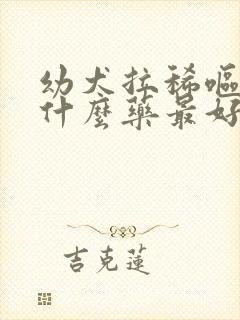 幼犬拉稀嘔
什麼藥最好
吉克蓮